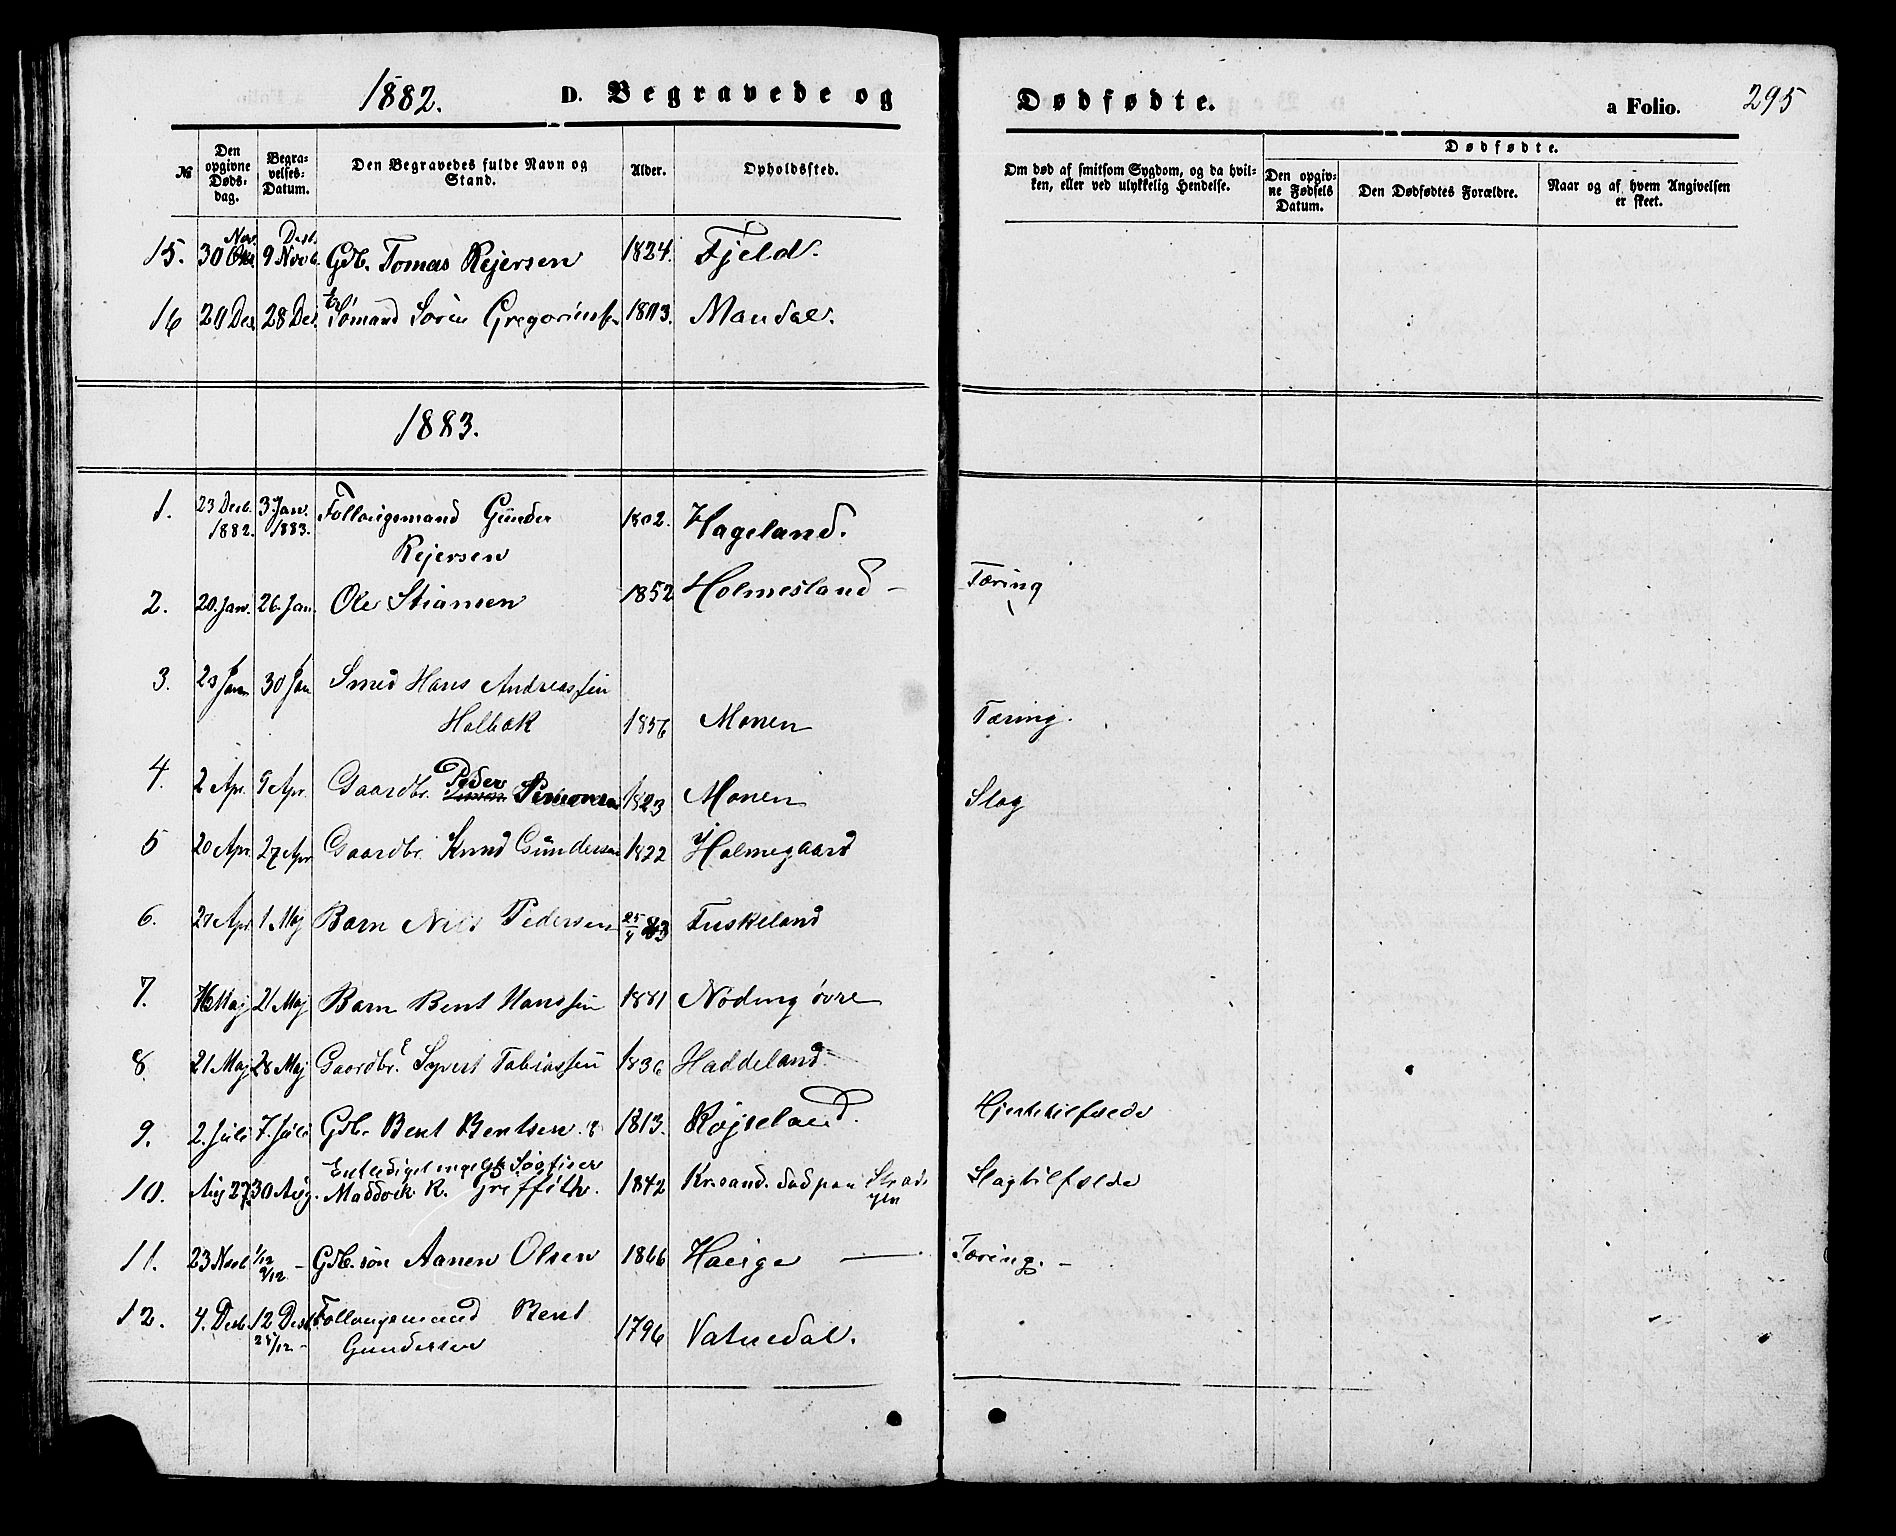 1882. D. Begravede og Dødfødte. a Folio. 295
№ Den opgivne Døds-dag. Begra-velses-Datum. Den Begravedes fulde Navn og Stand. Alder. Opholdssted. Om død af smitsom Sygdom, og da hvil-ken, eller ved ulykkelig Hendelse. Dødfødte. Den opgiv-ne Fødsels Datum. Den Dødfødtes Forældre. Naar og af hvem Angivelsen er skeet.
Nov. Desb.
15. 30 9 Novb. Gdb. Tomas Rejersen 1824. Fjeld.
16 20 Des. 28 Des. Sømand Sørin Gregoriussen Mandal.
1883.
1. 23 Desb. 1882. 3 Jan. 1883. Follaugsmand Günder
Rejersen 1802. Hageland.
2. 20. Jan. 26. Jan. Ole Stiansen 1852 Holmesland – Tæring
3. 23 Jan 30 Jan Smed Hans Andreassen
Holbæk 1856 Monen Tæring.
4. 2 Apr. 9 Apr. Gaardbr. Peder Simonsen 1823 Monen Slag
5 20 Apr 27 Apr Gaardbr. Knud Gündersen 1822 Holmegaard
6. 27 Apr 1 Maj Barn Nils Pedersen 25/4 83 Fuskeland
7. 16 Maj 21 Maj Barn Bent Hanssen 1881 Noding øvre
8. 21 Maj 28 Maj Gaardbr. Syvert Tobiassen 1836 Haddeland
9. 2. Juli 7. Juli Gdb. Bent Bentsen 1813. Røjseland. Hjertetilfælde
Entlediget engelsk Søofficer
10. Aug 27 30 Aug. Maddock R. Griffith. 1842 Kr.sand. død paa Slagtilfælde
11. 23 Novb 1/12 9/12 – Gdb. søn Aanen Olsen 1866 Haeige — Tæring. –
12. 4. Desb. 12 Desb. Follaugsmand Bent
25/12 – Gundersen 1796 Vatnedal.